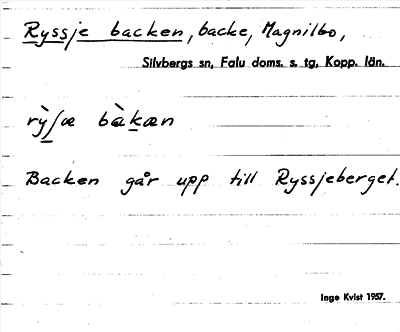 Ryssje backen, backe, Magnilbo,
Silvbergs sn, Falu doms. s. tg, Kopp. län.
rỳʃæ bàkæn
Backen går upp till Ryssjeberget.
Inge Kvist 1957.